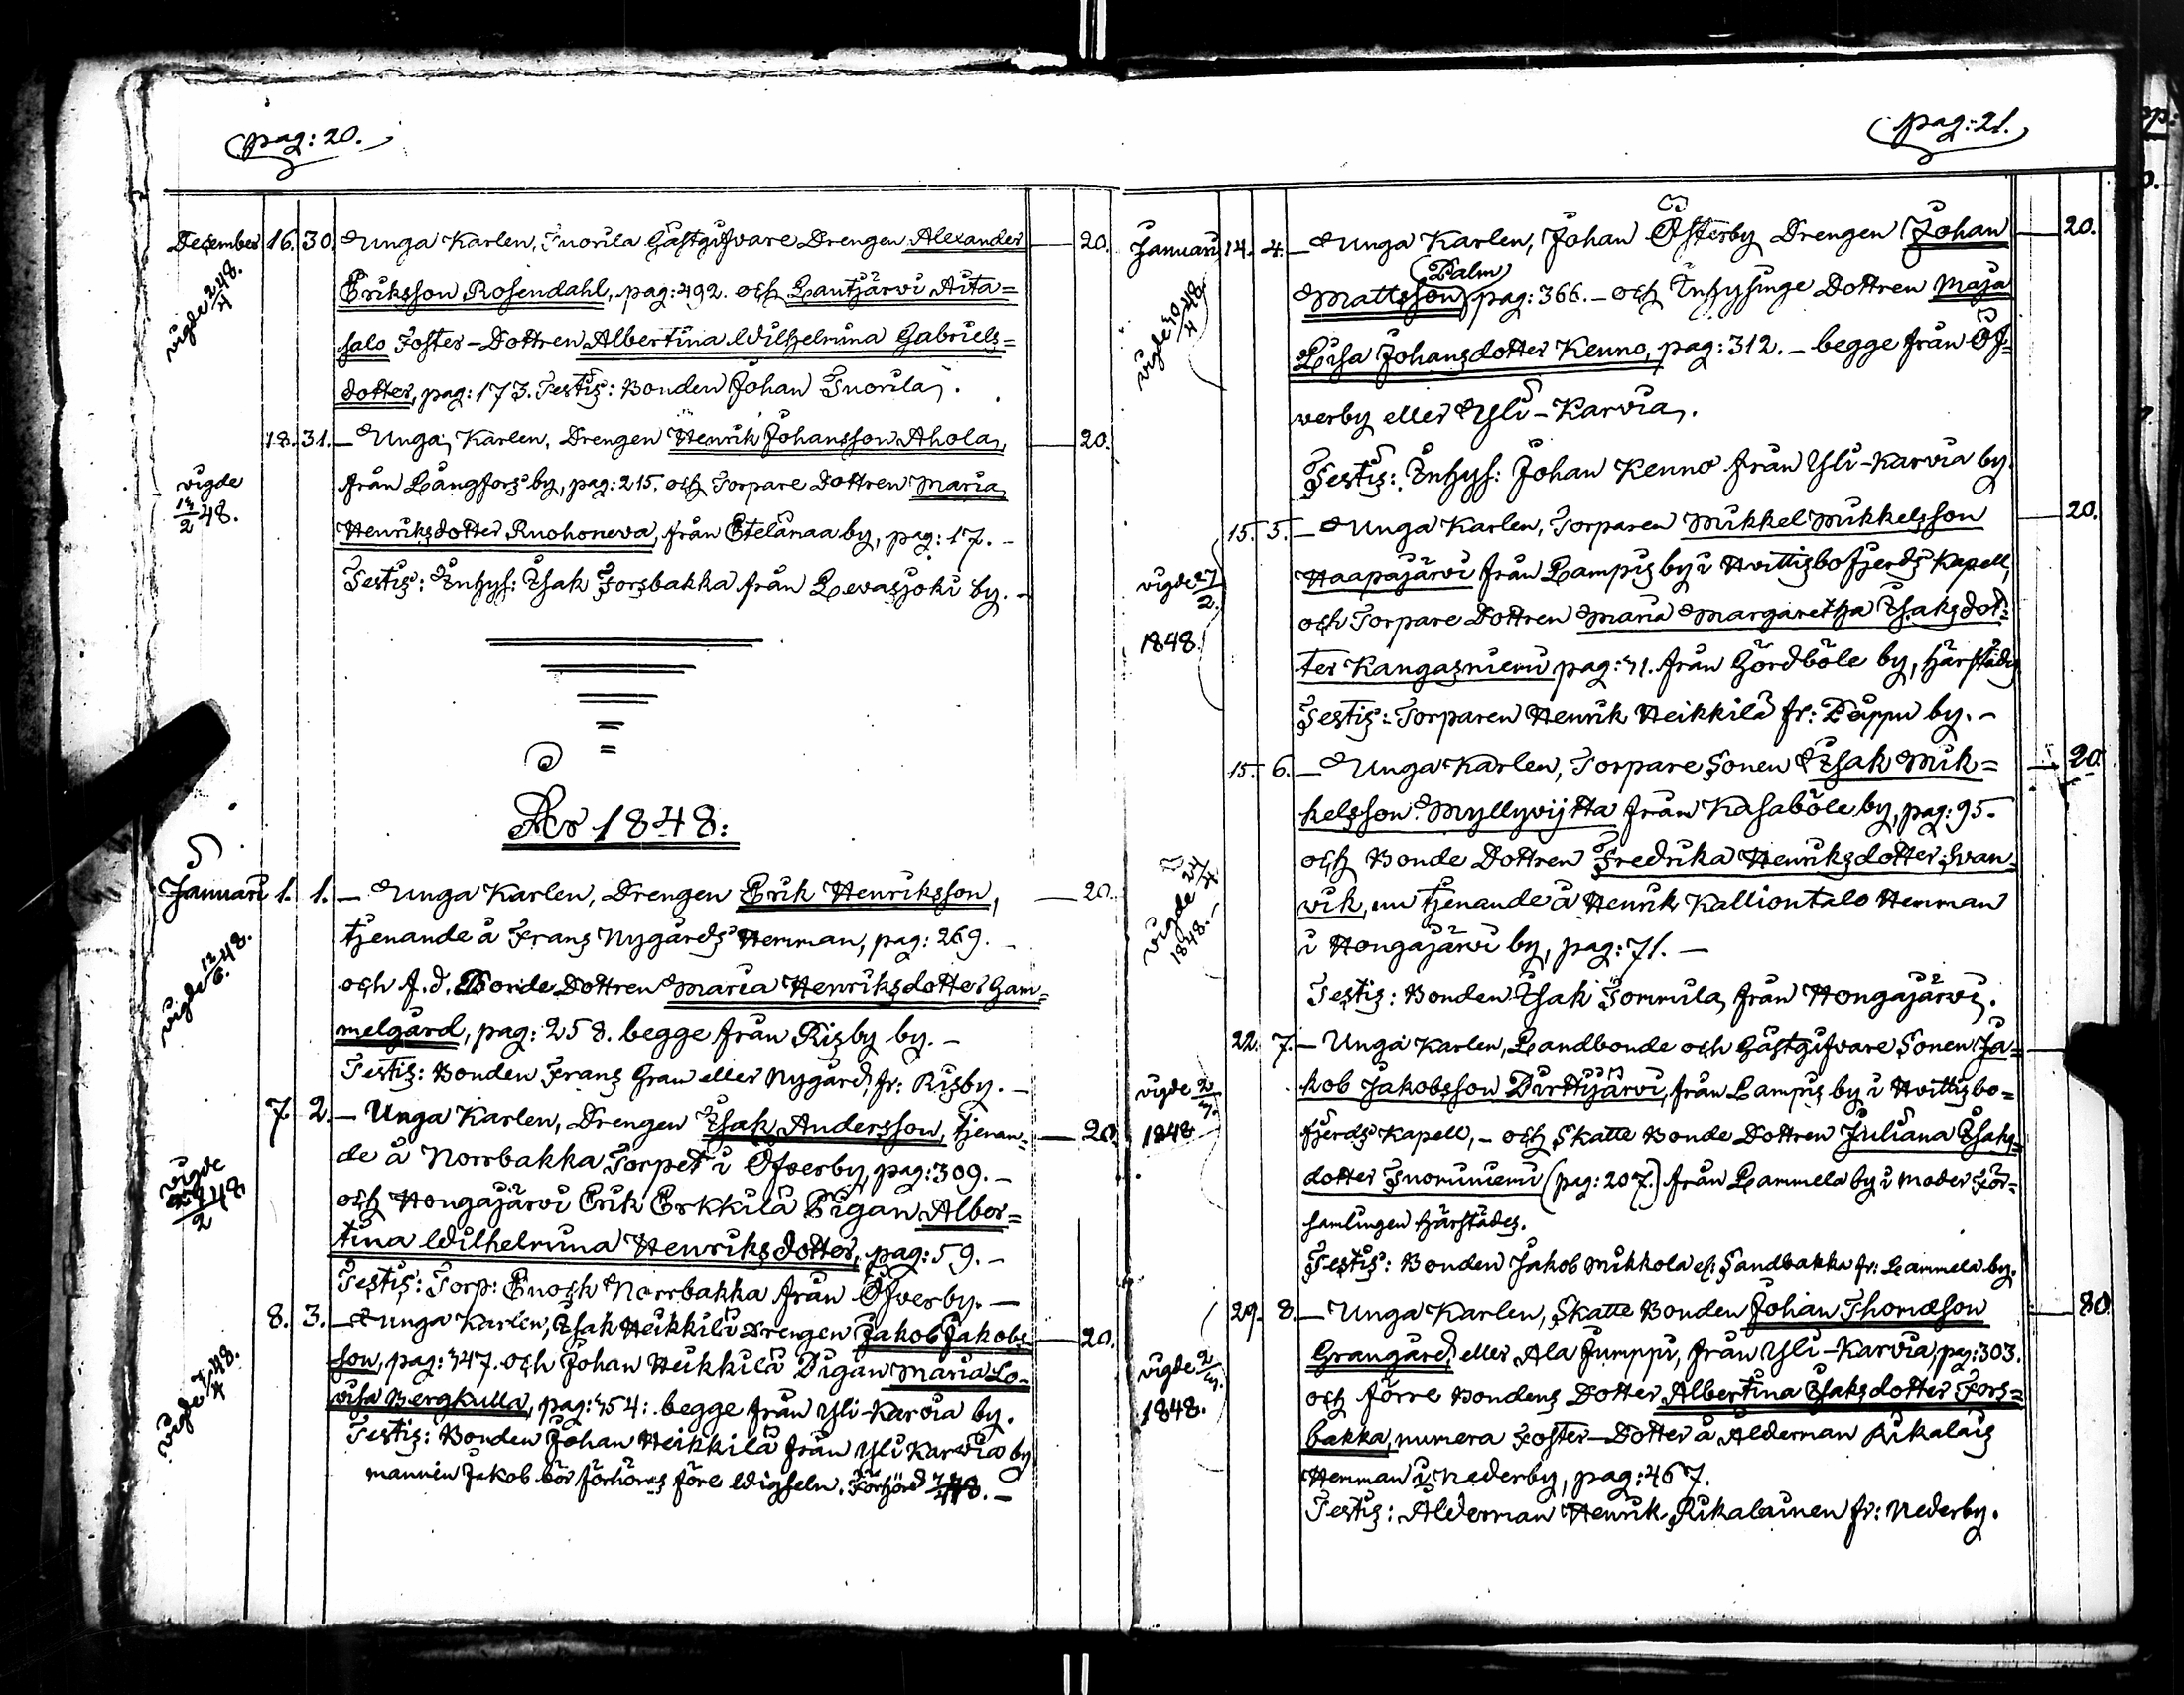 pag: 20.
December 16. 30. Unga Karlen, Suorila Gästgifvare Drengen Alexander 20.
vigde 24/4 48.
Eriksson Rosendahl, pag: 492. och Lautjärvi Aita=
salo Foster-Dottren Albertina Wilhelmina Gabriels=
dotter, pag: 173. Testis: Bonden Johan Suorila.
18. 31. – Unga Karlen, Drengen Henrik Johansson Ahola, 20.
från Långfors by, pag: 215. och Torpare Dottren Maria
vigde
/2 48.
Henriksdotter Ruohoneva, från Etelänaa by, pag: 17. –
Testis: Inhys: Isak Forsbakka från Levasjoki by. –
År 1848:
Januari 1. 1. – Unga Karlen, Drengen Erik Henriksson, 20.
tjenande å Frans Nygårds Hemman, pag: 269. –
vigde 12/6. 48.
och f.d. Bonde Dottren Maria Henriksdotter Gam=
melgård, pag: 258. begge från Risby by. –
Testis: Bonden Frans Gran eller Nygård, fr: Risby. –
7. 2. – Unga Karlen, Drengen Isak Andersson, tjenan= 20.
de å Norrbakka Torpet i Öfverby, pag: 309. –
vigde
/2 48
och Hongajärvi Erik Erkkilä Pigan Alber=
tina Wilhelmina Henriksdotter, pag: 59. –
Testis: Torp: Enoch Norrbakka från Öfverby. –
8. 3. – Unga Karlen, Isak Heikkilä Drengen Jakob Jakobs= 20.
son, pag: 347. och Johan Heikkilä Pigan Maria Lo=
vigde /4 48.
visa Bergkulla, pag: 354: begge från Yli-Karvia by.
Testis: Bonden Johan Heikkilä från Yli Karvia by
mannen Jakob bör förhöras före Wigseln. Förhörd 48. –
pag: 21.
Januari 14. 4. – Unga Karlen, Johan Österby Drengen Johan 20.
(Palm)
Mattsson, pag: 366. – och Inhysinge Dottren Maja
vigde 30/4 48.
Lisa Johansdotter Kenno, pag: 312. – begge från Öf=
verby eller Yli-Karvia.
Testis: Inhys: Johan Kenno från Yli-Karvia by
15. 5. – Unga Karlen, Torparen Mikkel Mikkelsson 20.
Haapajärvi från Lampis by i Hvittisbofjerds Kapell,
vigde 27/2.
1848.
och Torpare Dottren Maria Margaretha Isaksdot=
ter Kangasniemi pag: 41. från Gördböle by, härstädes
Testis: Torparen Henrik Heikkilä fr: Leppu by. –
15. 6. – Unga Karlen, Torpare Sonen Isak Mik= 20.
kelsson Myllyviita från Kasaböle by, pag: 95.
och Bonde Dottren Fredrika Henriksdotter Svan=
vigde 24/4
1848. –
vik, nu tjenande å Henrik Kalliontalo Hemman
i Hongajärvi by, pag: 71. –
Testis: Bonden Isak Tommila, från Hongajärvi.
22. 7. – Unga Karlen, Landbonde och Gästgifvare Sonen Ja=
kob Jakobsson Pirttijärvi, från Lampis by i Hvittisbo=
vigde 2/4.
1848
fjerds Kapell, – och Skatte Bonde Dottren Juliana Isaks=
dotter Suominiemi (pag: 207.) från Lammela by i Moder För=
samlingen härstädes.
Testis: Bonden Jakob Mikkola el: Sandbakka fr: Lammela by.
29. 8. – Unga Karlen, Skatte Bonden Johan Thomasson 80
Grangård, eller Ala Jumppi, från Yli-Karvia, pag: 303.
vigde 2/4.
1848.
och förre Bondens Dotter Albertina Isaksdotter Fors=
bakka, numera Foster-Dotter å Ålderman Rikalais
Hemman i Nederby, pag: 467.
Testis: Ålderman Henrik Rikalainen fr: Nederby.